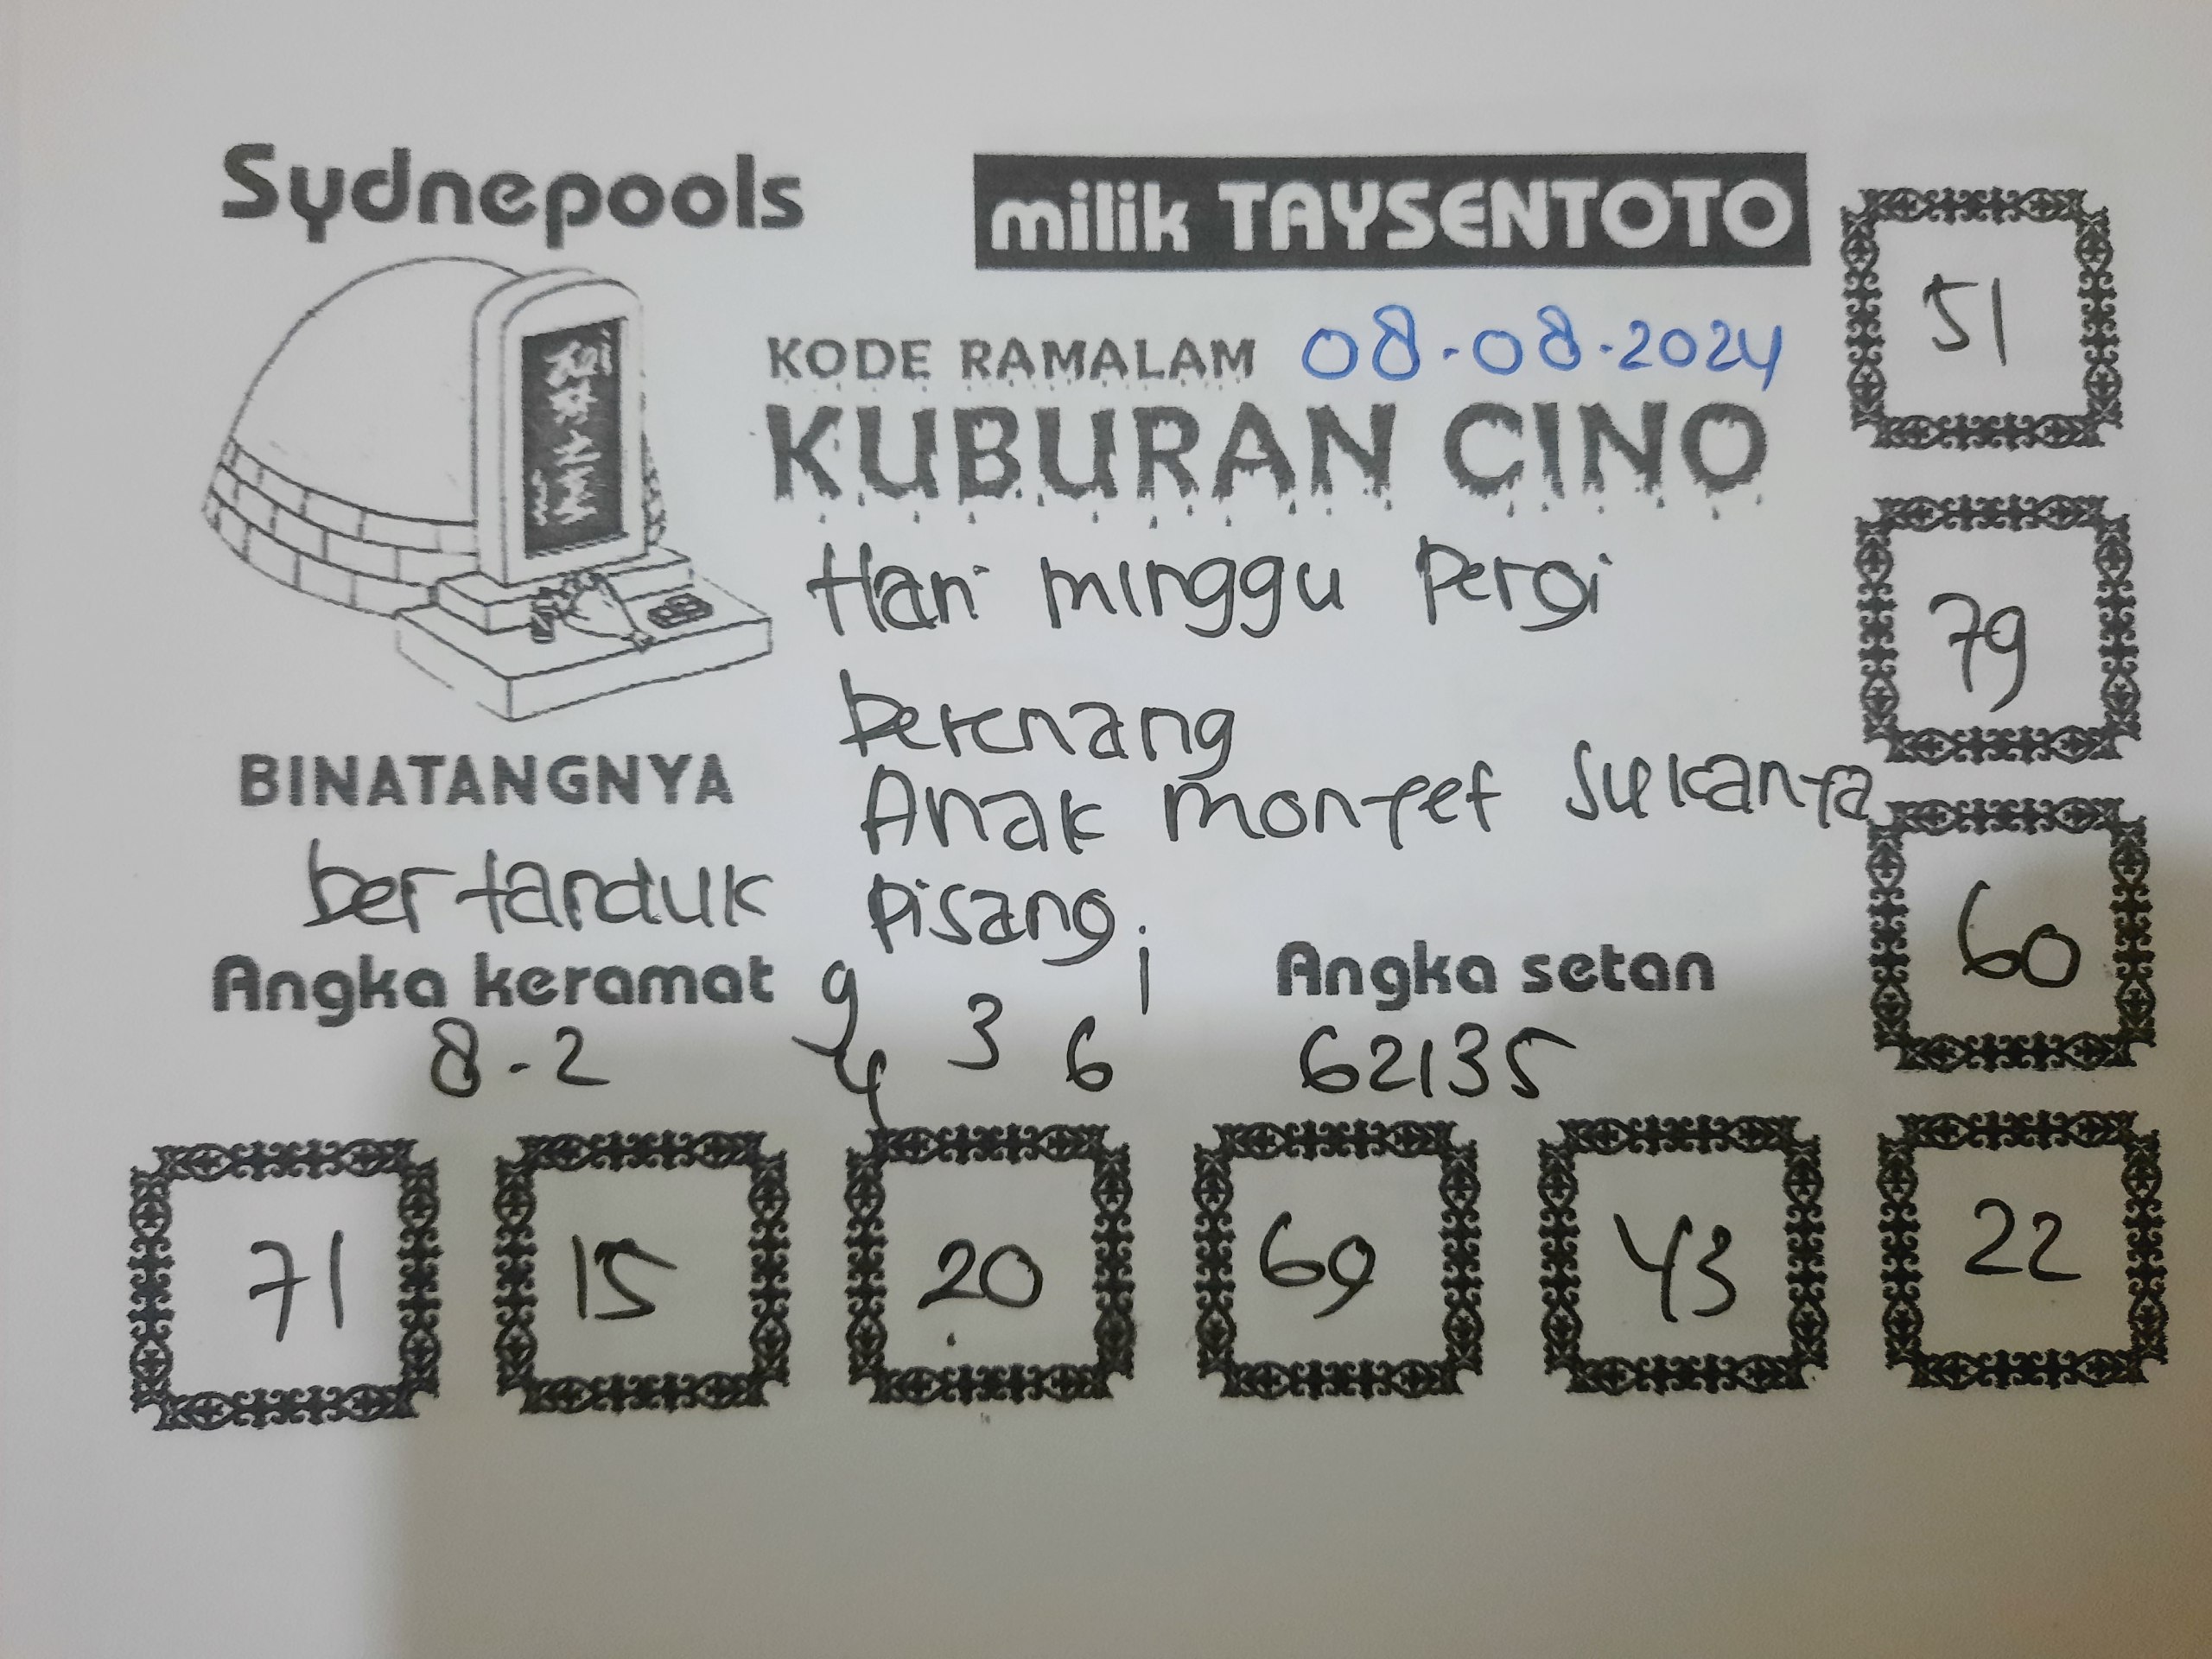 Sydnepools
milik TAYSENTOTO
KODE RAMALAM 08-08-2024
KUBURAN CINO
Hari minggu Pergi
berenang
Anak monyet sukanya
Pisang
BINATANGNYA
bertanduk
Angka keramat
8-2
9 3 6 1
4
Angka setan
62135
51
79
60
71 15 20 69 43 22